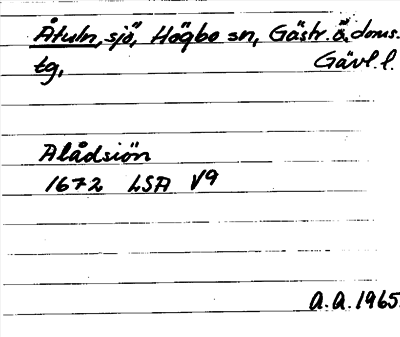 Åtuln, sjö, Högbo sn, Gästr. ö. doms.
tg,
Gävl. l.
Alådsiön
1672 LSA V9
A.A. 1965